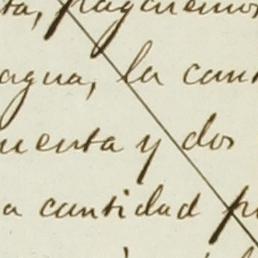 ta, paguemos
agua, la cant
uenta y dos
a cantidad p